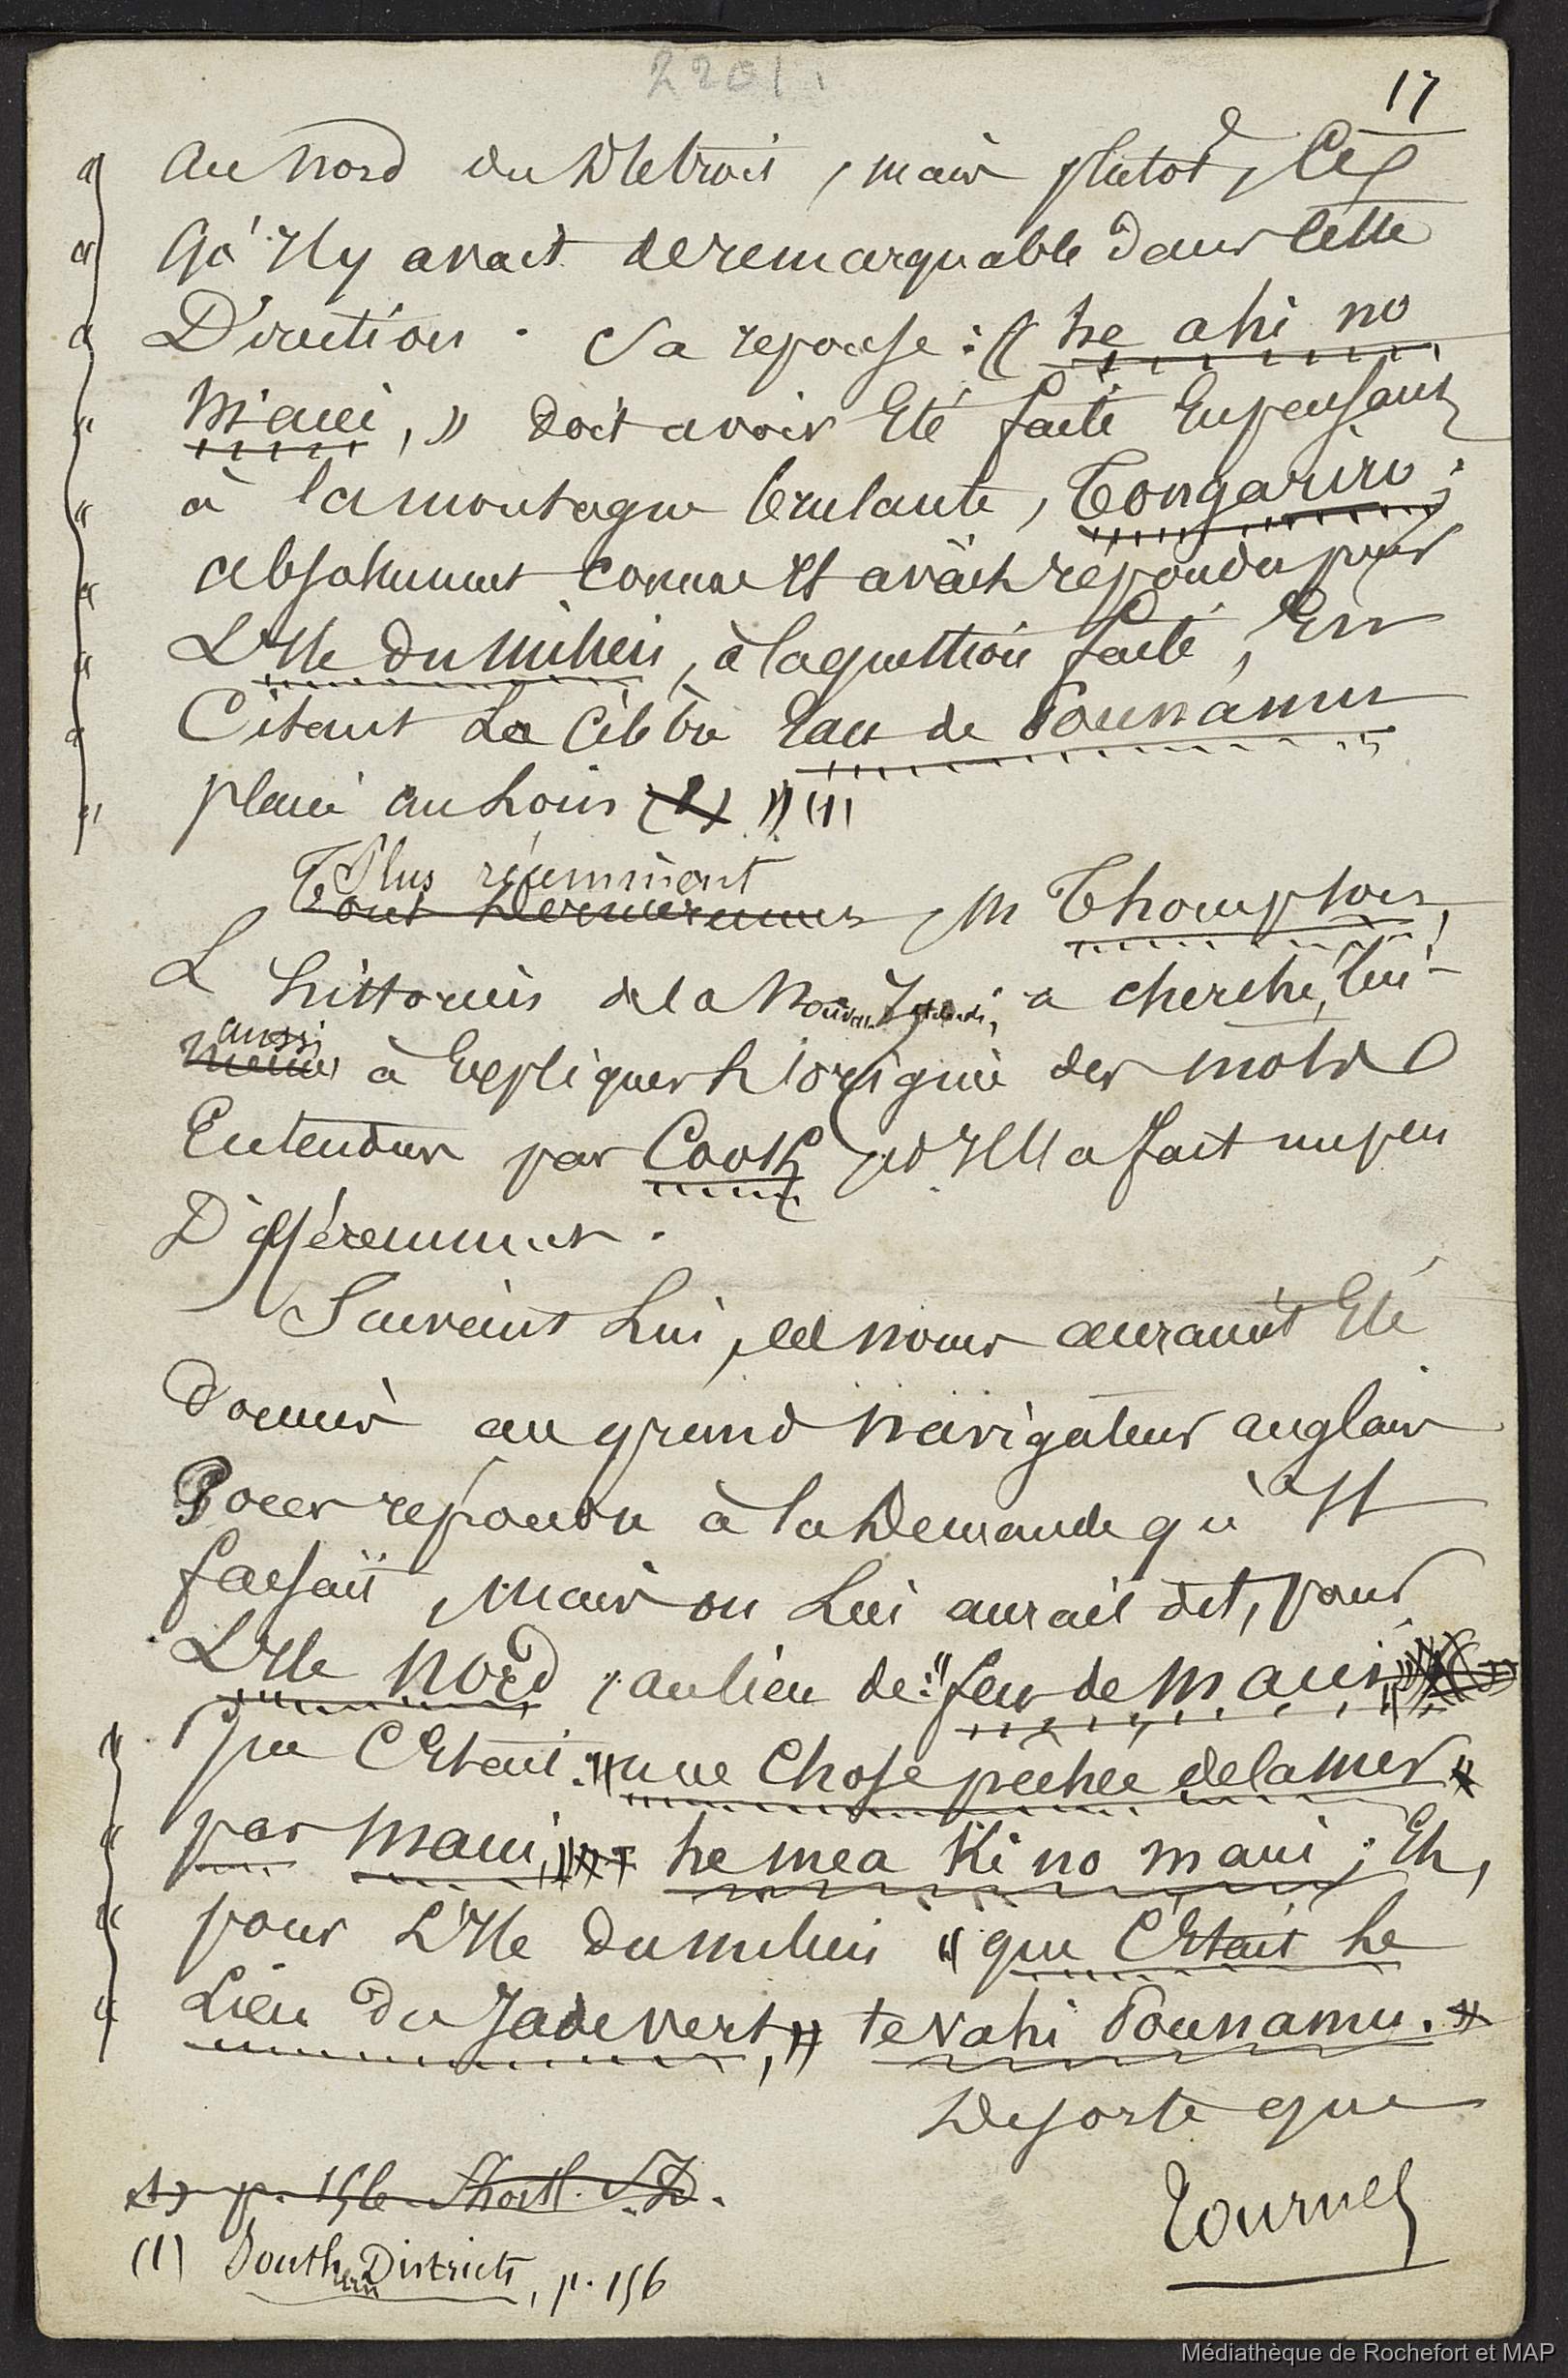 2201
17
" au nord du Détroit, mais plutôt, ce
" qu'Il y avait de remarquable dans cette
" Direction. Sa reponse : « he ahi no
" Maui, » doit avoir Eté faite En pensant
" à la montagne brulante, Tongariro ;
" absolument comme Il avait répondu pour
" L'Ile du Milieu, à la question faite, En
" Citant La Célèbre Eau de Pounamu
" placé au Loin (1) » (1)
Plus récemment
Tout Dernierement, M Thompson,
L'historien de la Nouvelle Zélande, a cherché, lui-
aussi
même à Expliquer L'origine des mots
Entendus par Cook, et Il l'a fait un peu
Différemment.
Suivant Lui, ces noms auraient Eté
donnés au grand navigateur anglais
Pour repondre à la Demande qu'Il
faisait, mais on Lui aurait dit, pour
L'Ile Nord, au lieu de : "feu de Maui"
" que C'Etait : "une Chose pêchée de la mer
" par Maui," he mea hi no maui ; Et,
" pour L'Ile du milieu « que C'Etait le
" Lieu du Jade vert, » te vahi Pounamu. »
De sorte que
tournez
(1) p. 156 Shortl. S.D.
(1) Southern Districts, p. 156
Médiathèque de Rochefort et MAP